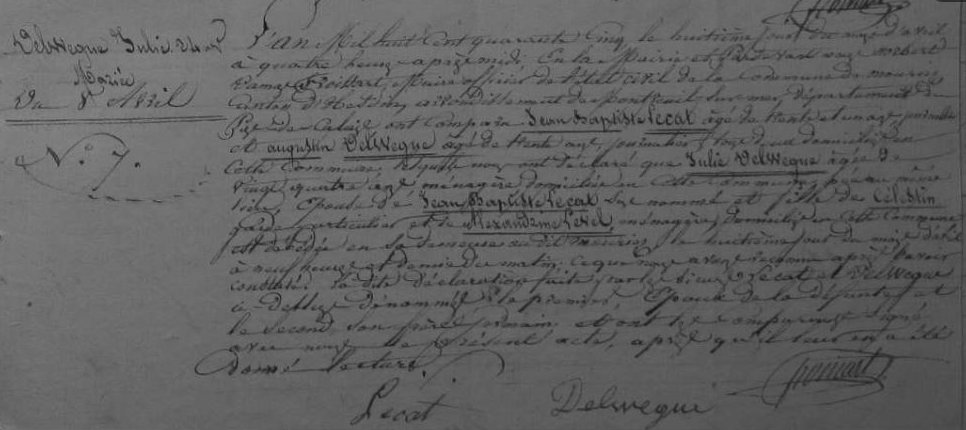 Delwegue Julie 24 ans
Mariée
Du 8 Avril
N.° 7.
L'an Mil huit Cent quarante Cinq le huitième jour du mois d'avril
à quatre heures après midi. En la Mairie et Pardevant nous Norbert
Maire officier de l'état civil de la Commune de
Canton d'Hesdin, arrondissement de Montreuil sur mer, Département du
Pas de Calais ont comparu Jean Baptiste Lecat agé de trente et un ans, journalier
et augustin Delwegue agé de trente ans, journalier, tous deux domiciliés en
Cette Commune, lesquels nous ont déclaré que Julie Delwegue âgée de
Vingt quatre ans ménagère domiciliée en cette commune, née au même
lieu, Epouse de Jean Baptiste Lecat sus nommé et fille de Célestin
garde particulier et de Alexandrine ménagère, domiciliés à Cette Commune
est décédée en sa demeure au dit le huitième jour du mois d'avril
à neuf heures et demie du matin, ce que nous avons reconnu après l'avoir
constaté. la dite déclaration faite par les Sieurs Lecat et Delwegue
ci-dessus dénommés le premier Epoux de la défunte et
le second son frère germain et ont les comparans signé
avec nous le présent acte, après qu'il leur en a été
donné lecture.
Lecat Delwegue